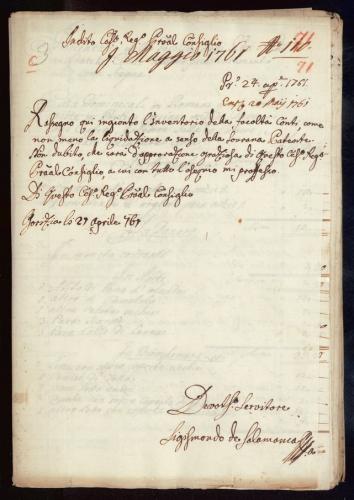 Inclito Ces.o Reg.o Prõal Consiglio
9. Maggio 1761
71
Pr: 24. ap.e 1761.
20 Maij 1761
Rassegno qui ingionto l'Inventario della facoltà Conti, come
non meno la liquidazione a senso della Sovrana Patente.
Non dubito, che sarà d'approvazione graziosa di Questo Ces.o Reg.o
Prõal Consiglio, a cui con tutto l'ossequio mi professo.
Di Questo Ces.o Reg.o Prõal Consiglio
lo 27 Aprile 761
Devot.o Servitore
Sigismondo de Salamanca